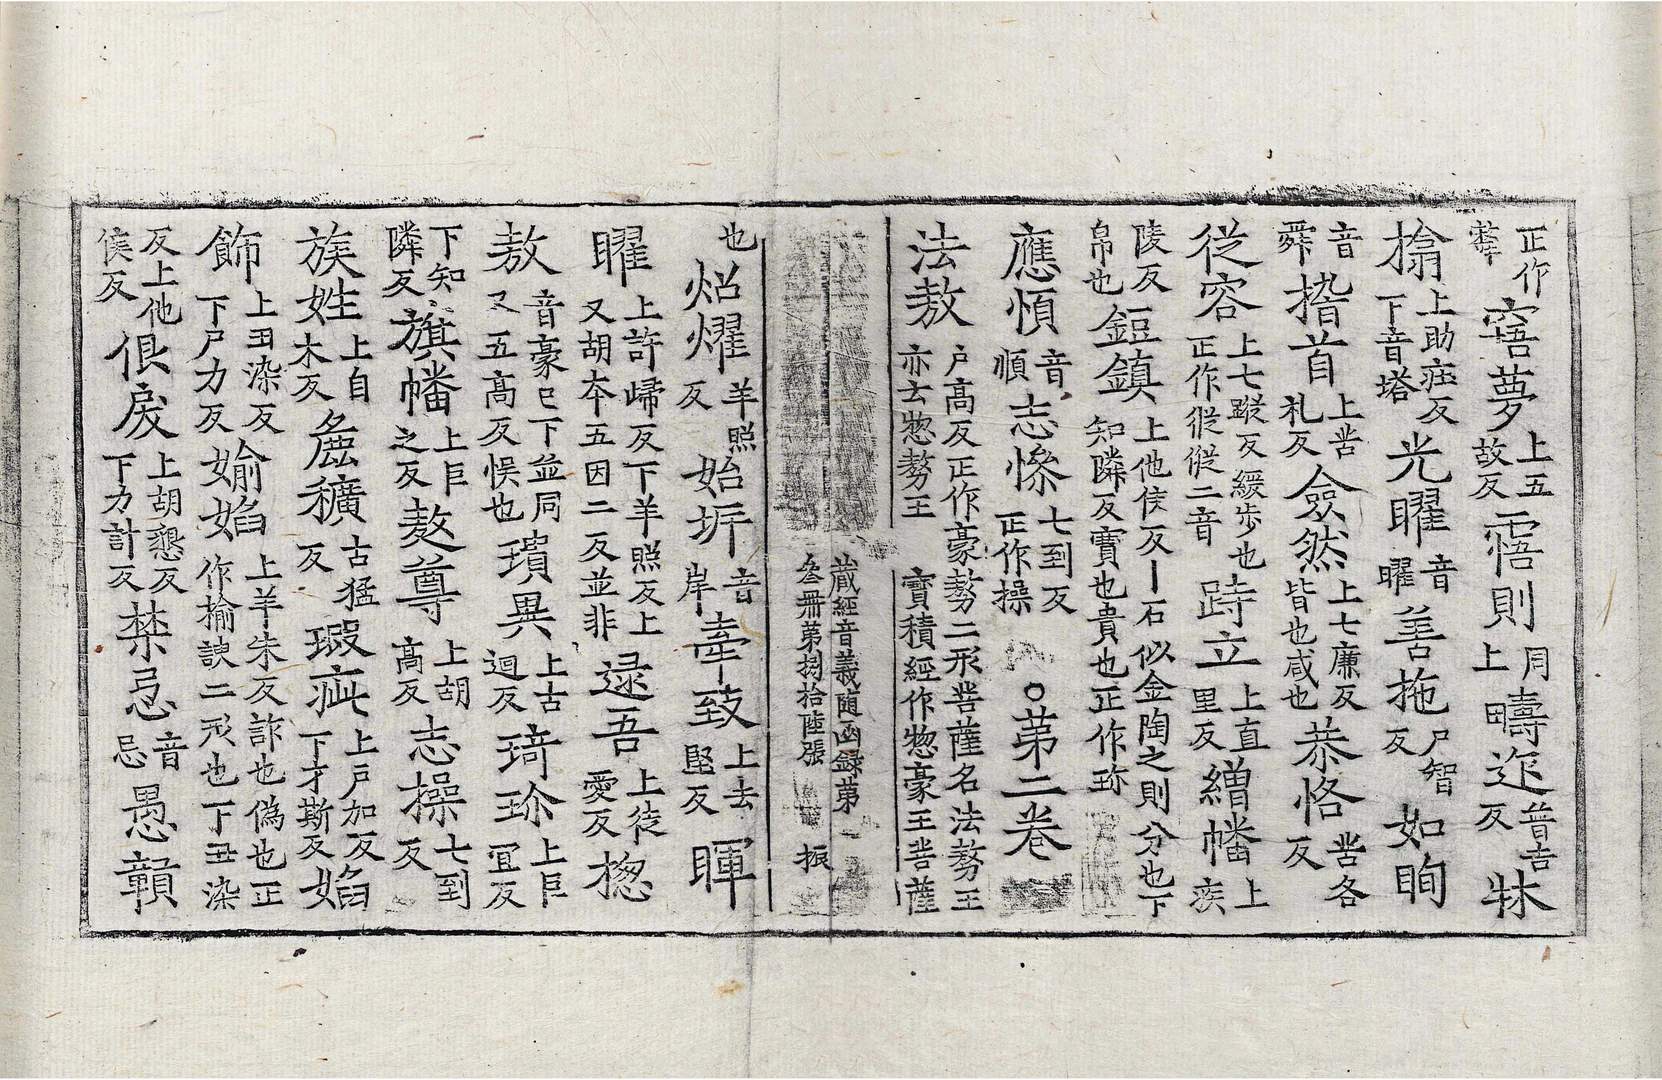 正作𦽦寤夢上五故反𤕻則上同疇迩上田反普吉牀
㩉上助庄反下音塔光曜音曜善拖尸智反如眴
音舜揩首上苦礼反僉然上七廉反皆也咸也恭恪苦各反
従容上七蹤反緩步也正作從縱二音跱立上直里反繒幡上疾
陵反帛也鋀鎮上他侯反丨石似金陶之則分也下知隣反寶也貴也正作珎
應愼音順志懆七到反正作操○第二卷
法敖戶高反正作豪㔠二形䒭薩名法㔠王亦云惣㔠王寶積經作惣豪王䒭薩
藏經音義随函録第叁冊第捌拾陸張振
也炤燿羊照反始圻音岸牽致上去堅反暉
曜上許歸反下羊照反上又胡本五因二反並非逯吾上徒愛反揔
敖音豪已下並同又五高反悮也瑣異上古迴反琦珎上巨冝反
下知隣反旗幡上巨之反敖尊上胡高反志操七到反
族姓上自木反麁穬古猛反瑕疵上戶加反下才斯反㛼
飾上丑染反下尸力反媮㛼上羊朱反詐也偽也正作揄諛二形也丁丑染
反上他侯反佷戾上胡懇反下力計反禁忌音忌愚贑